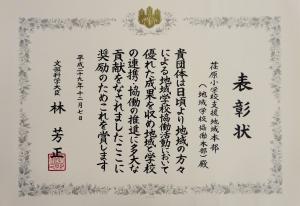 表彰状
荏原小学校支援地域本部
（地域学校協働本部）殿
貴団体は日頃より地域の方々
による地域学校協働活動において
優れた成果を収め地域と学校
の連携・協働の推進に多大な
貢献をなされましたここに
奨励のためこれを賞します
平成二十九年十二月七日
文部科学大臣
林芳正